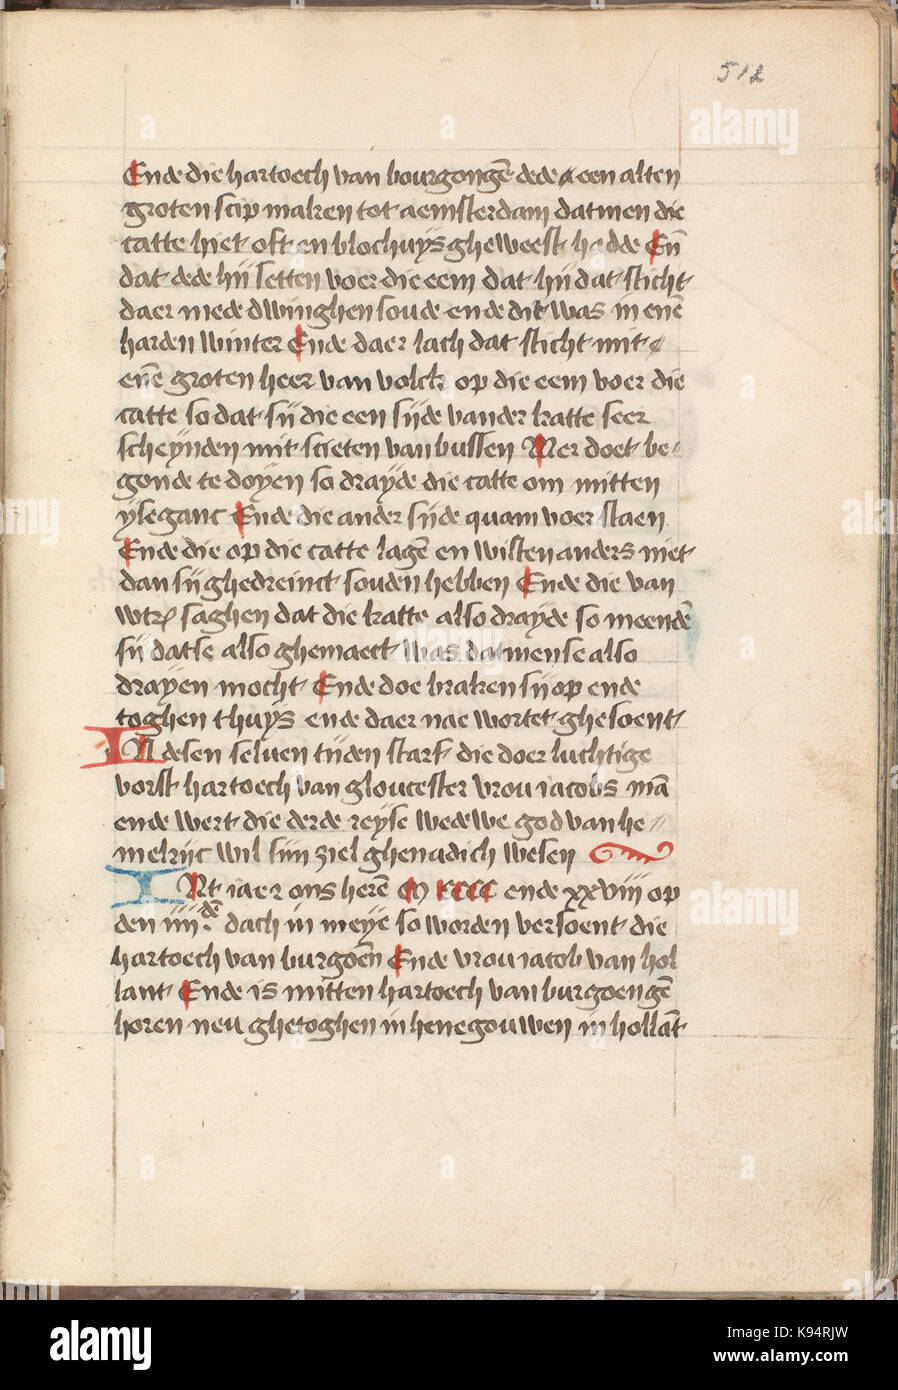 512
Ende die hartoech van bourgongē dede een alten
groten scip maken tot aemsterdam datmen die
catte hiet oft en blochuijs gheweest hadde Eñ
dat dede hij setten voer die eem dat hij dat sticht
daer mede dwinghen soude ende dit was in enē
harden winter Ende daer lach dat sticht mit
enē groten heer van volck op die eem voer die
catte so dat sij die een sijde vander katte seer
scheynden mit scieten van bussen Mer doet be-
gonde te doyen so drayde die catte om mitten
ysegанc Ende die ander sijde quam voer staen
Ende die op die catte lagē en wisten anders niet
dan sij ghedreinct souden hebben Ende die van
wtr saghen dat die katte also drayde so meendē
sij datse also ghemaect was datmense also
drayen mocht Ende doe braken sij op ende
toghen thuys ende daer nae wortet ghesoent
IN desen seluen tijden starf die doer luchtige
vorst hartoech van gloucester vrou iacobs mā
ende wert die derde reyse wedewe god van he-
melrijc wil sijn ziel ghenadich wesen
INt iaer ons herē M CCCC ende xxviij op
den iiijden dach in meye so worden versoent die
hartoech van burgoēn Ende vrou iacob van hol
lant Ende is mitten hartoech van burgoengē
horen neu ghetoghen in henegouwen in hollāt
alamy
Image ID: K94RJW
www.alamy.com